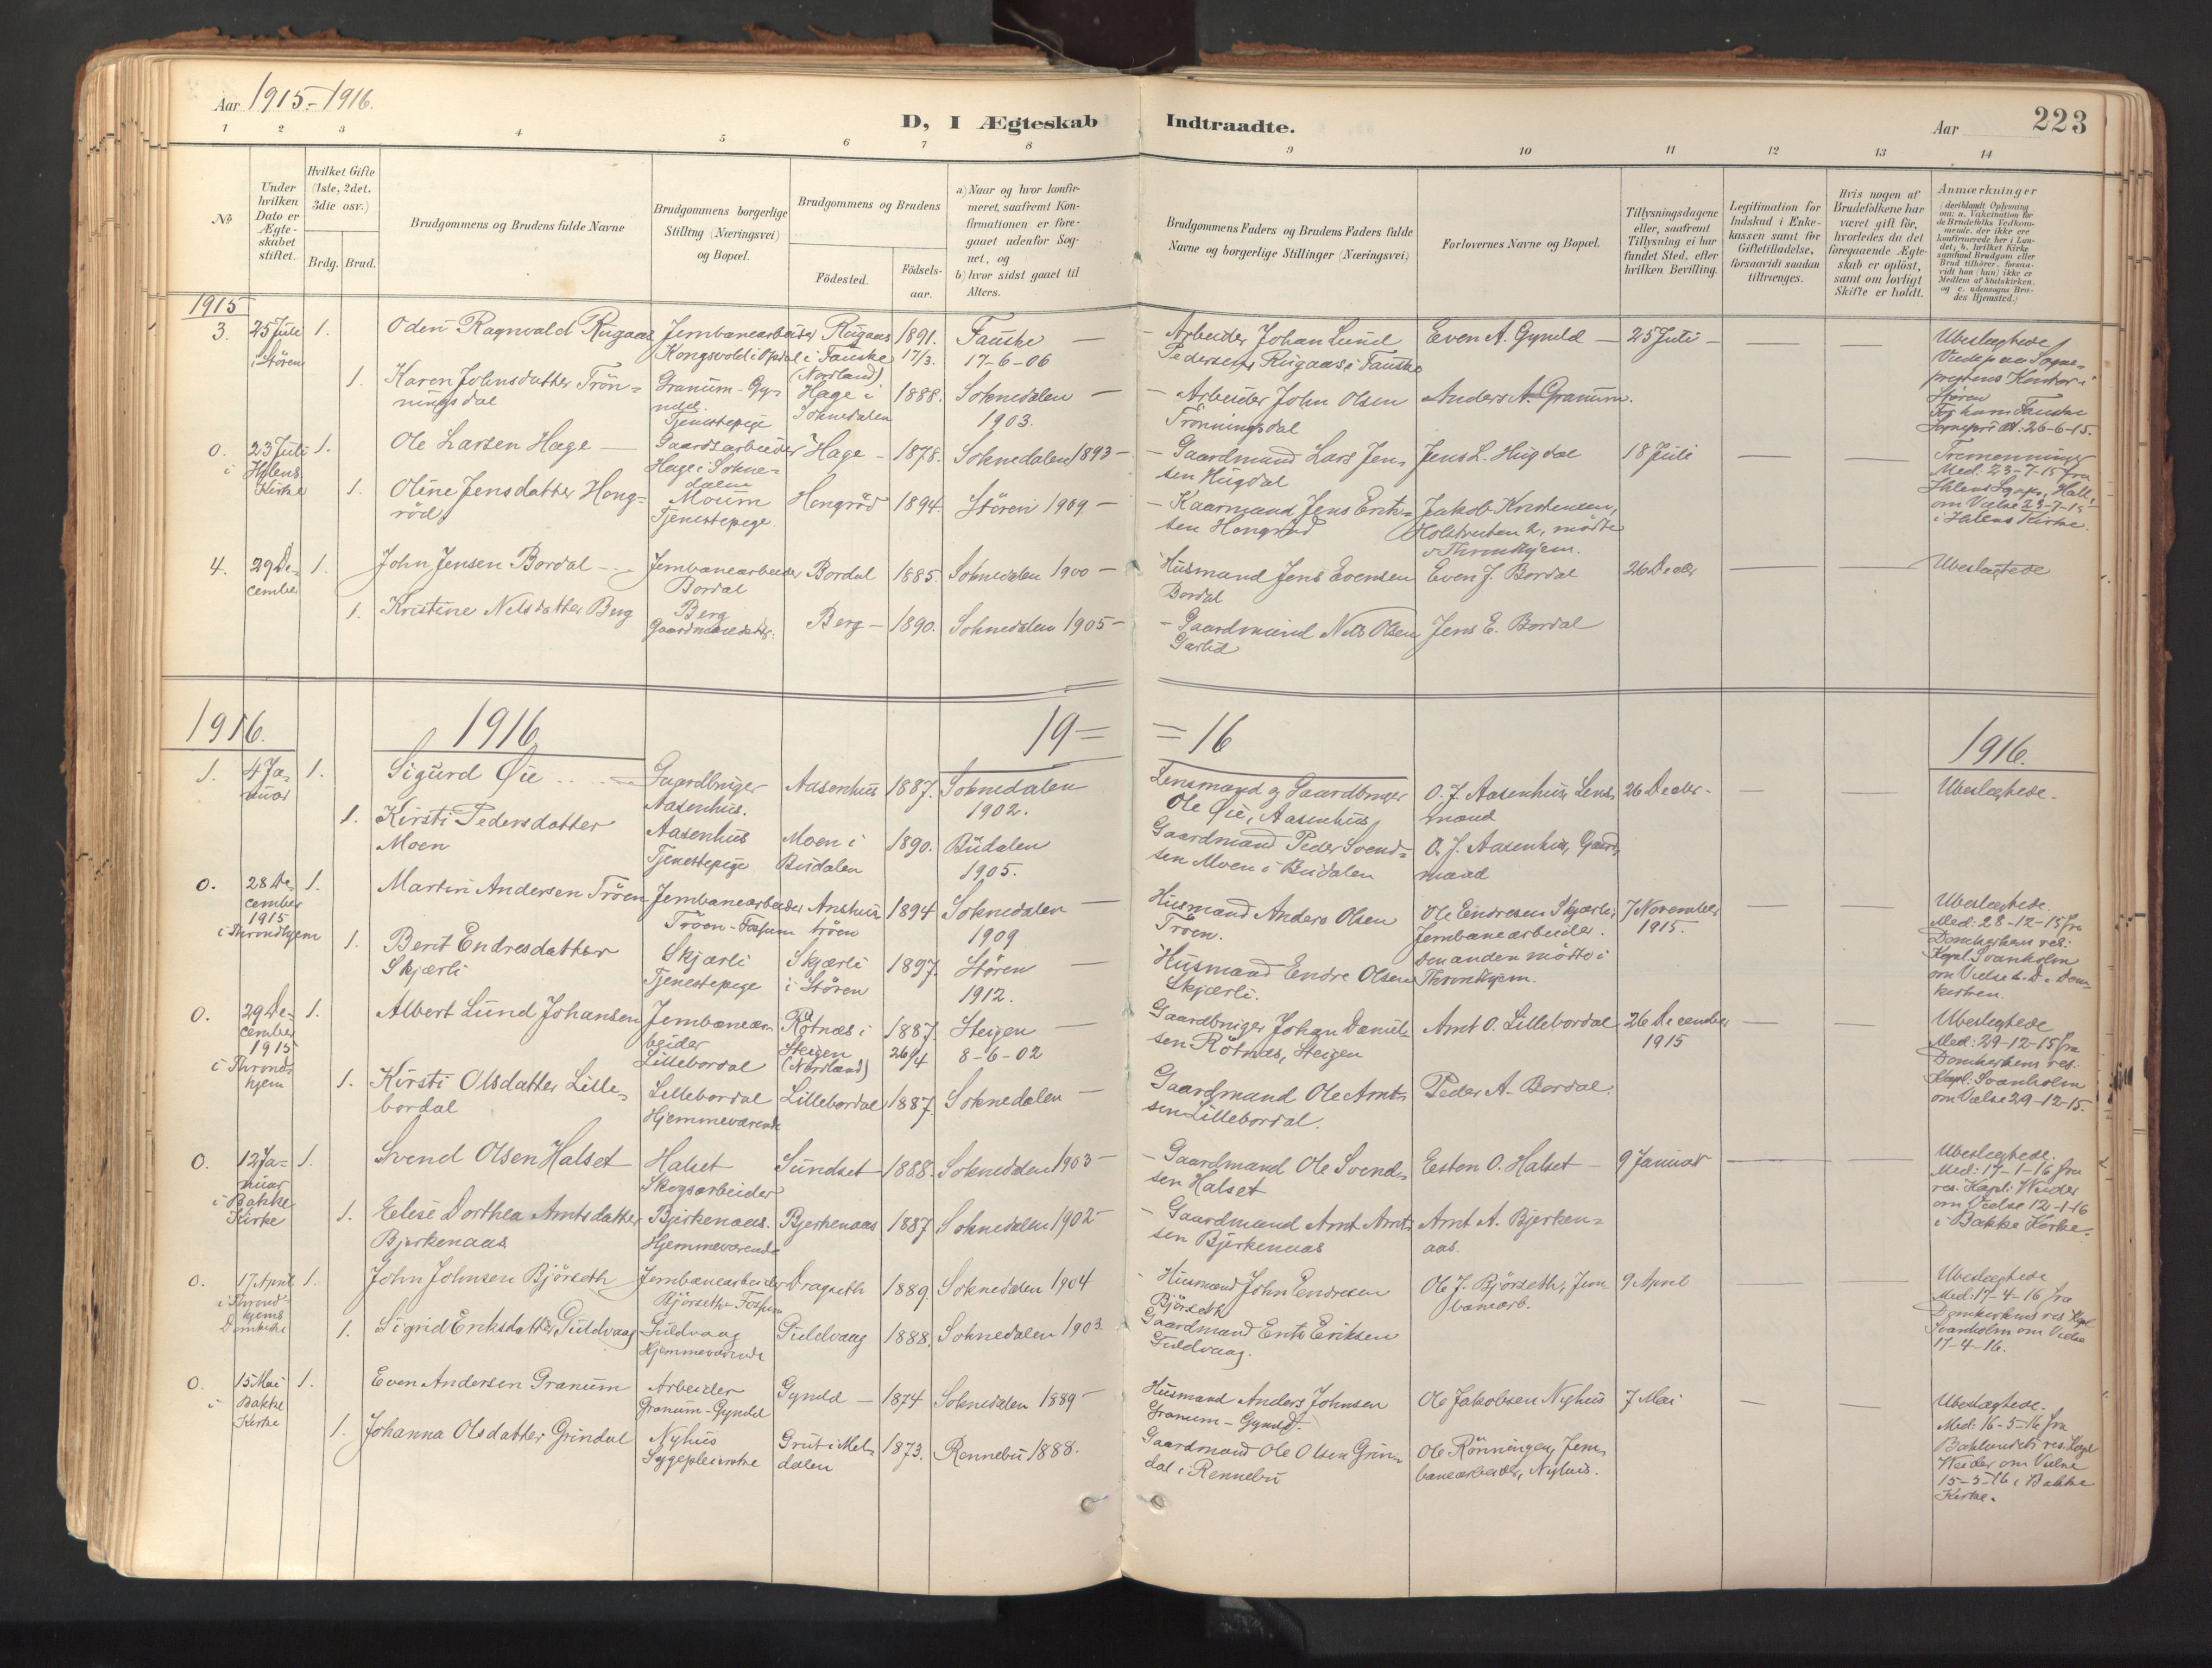 Aar 1915-1916.
D, I Ægteskab Indtraadte.
Aar 223
1 2 3 4 5 6 7 8 9 10 11 12 13 14
No
Under hvilken Dato er Ægte-skabet stiftet.
Hvilket Gifte (1ste, 2det, 3die osv.)
Brdg. Brud.
Brudgommens og Brudens fulde Navne
Brudgommens borgerlige Stilling (Næringsvei) og Bopæl.
Brudgommens og Brudens
Födested.
Födsels-aar.
a) Naar og hvor konfir-meret, saafremt Kon-firmationen er fore-gaaet udenfor Sog-net, og
b) hvor sidst gaaet til Alters.
Brudgommens Faders og Brudens Faders fulde Navne og borgerlige Stillinger (Næringsvei)
Forlovernes Navne og Bopæl.
Tillysningsdagene eller, saafremt Tillysning ei har fundet Sted, efter hvilken Bevilling.
Legitimation for Indskud i Enke-kassen samt for Giftetilladelse, forsaavidt saadan tiltrænges.
Hvis nogen af Brudefolkene har været gift för, hvorledes da det foregaaende Ægte-skab er oplöst, samt om lovligt Skifte er holdt.
Anmærkninger (deriblandt Oplysning om: a. Vakcination för de Brudefolks Vedkom-mende, der ikke ere konfirmerede her i Lan-det; b. hvilket Kirke-samfund Brudgom eller Brud tilhörer, forsaa-vidt han (hun) ikke er Medlem af Statskirken, og c. udensogns Bru-des Hjemsted.)
1915
3. 25 Juli i Stören 1. Oden Ragnvald Rugaas Jernbanearbeider Kongsvold i Opdal Rugaas i Fauske (Nordland) 1891. 17/3. Fauske 17-6-06 Arbeider Johan Lund Pedersen, Rugaas i Fauske Even A. Gynild 25 Juli Ubeslegtede Viede paa Sogne-prestens Kontor i Stören Fauske 26-6-15.
1. Karen Johnsdatter Trön-ningsdal Granum-Gy-nild. Tjenestepige Hage i Soknedalen 1888. Soknedalen 1903. Arbeider John Olsen Trönningsdal Anders A. Granum.
0. 23 Juli i Ihlens Kirke 1. Ole Larsen Hage Gaardsarbeider Hage i Sokne-dalen Hage 1878. Soknedalen 1893 Gaardmand Lars Jen-sen Hugdal Jens L. Hugdal 18 Juli Tremenninger Med: 23-7-15 fra Ihlens om Vielse 23-7-15 i Ihlens Kirke.
1. Oline Jensdatter Hong-röd Moum Tjenestepige. Hongröd 1894. Stören 1909 Kaarmand Jens Erik-sen Hongröd Jakob Kristensen, mödte i Throndhjem.
4. 29 De-cember 1. John Jensen Bordal Jernbanearbeider Bordal Bordal 1885. Soknedalen 1900 Husmand Jens Evensen Bordal Even J. Bordal 26 Decbr Ubeslegtede
1. Kristine Nilsdatter Berg Berg Gaardmandsdatter. Berg 1890. Soknedalen 1905 Gaardmand Nils Olsen Garlid Jens E. Bordal
1916. 1916 19= =16 1916.
1. 4 Ja-nuar 1. Sigurd Øie Gaardbruger Aasenhus. Aasenhus 1887. Soknedalen 1902. Lensmand og Gaardbruger Ole Øie, Aasenhus O. J. Aasenhus Lens-mand 26 Decbr. Ubeslegtede.
1. Kirsti Pedersdatter Moen Aasenhus Tjenestepige Moen i Budalen 1890. Budalen 1905. Gaardmand Peder Svend-sen Moen i Budalen O. J. Aasenhus, Gaard-mand
0. 28 De-cember 1915 i Throndhjem 1. Martin Andersen Tröen Jernbanearbeider Tröen-Fossum Anshus-tröen 1894 Soknedalen 1909 Husmand Anders Olsen Tröen. Ole Endresen Skjærli, Jernbanearbeider. Den anden mödte i Throndhjem. 7 November 1915. Ubeslegtede. Med: 28-12-15 fra Domkirkens res: Kapl. Svanholm om Vielse s. D. i Dom-kirken.
1. Berit Endresdatter Skjærli Skjærli Tjenestepige Skjærli i Stören 1897. Stören 1912. Husmand Endre Olsen Skjærli.
0. 29 De-cember 1915 i Thrond-hjem 1. Albert Lund Johansen Jernbanear-beider Lillebordal Rötnæs i Steigen (Nordland) 1887. 26/4 Steigen 8-6-02 Gaardbruger Johan Daniel-sen Rötnæs, Steigen Arnt O. Lillebordal 26 December 1915 Ubeslegtede Med: 29-12-15 fra Domkirkens res: Kapl: Svanholm om Vielse 29-12-15.
1. Kirsti Olsdatter Lille-bordal Lillebordal Hjemmeværende Lillebordal 1887. Soknedalen Gaardmand Ole Arnt-sen Lillebordal. Peder A. Bordal.
0. 12 Ja-nuar i Bakke Kirke 1. Svend Olsen Halset Halset Skogsarbeider Sundset 1888. Soknedalen 1903 Gaardmand Ole Svend-sen Halset Esten O. Halset 9 Januar Ubeslegtede. Med: 17-1-16 fra res. Kapl: Weider om Vielse 12-1-16 i Bakke Kirke.
1. Elise Dorthea Arntsdatter Bjerkenaas Bjerkenaas. Hjemmeværende Bjerkenaas 1887 Soknedalen 1902 Gaardmand Arnt Arnt-sen Bjerkenaas Arnt A. Bjerken-aas.
0. 17 April i Thrond-hjems Domkirke 1. John Johnsen Björseth Jernbanearbeider Björseth-Fossum Dragseth 1889 Soknedalen 1904 Husmand John Endresen Björseth Ole J. Björseth, Jern-banearb. 9 April Ubeslegtede Med: 17-4-16 fra Domkirkens res. Kapl Svanholm om Vielse 17-4-16.
1. Sigrid Eriksdatter Guldvaag Guldvaag Hjemmeværende Guldvaag 1888. Soknedalen 1903. Gaardmand Erik Eriksen Guldvaag.
0. 15 Mai i Bakke Kirke 1. Even Andersen Granum Arbeider Granum-Gynild Gynild 1874 Soknedalen 1889 Husmand Anders Johnsen Granum-Gynild. Ole Jakobsen Nyhus 7 Mai Ubeslegtede. Med: 16-5-16 fra Baklandets res. Kapl Weider om Vielse 15-5-16 i Bakke Kirke.
1. Johanna Olsdatter Grindal Nyhus Sygepleierske Grut i Mel-dalen 1873. Rennebu 1888. Gaardmand Ole Olsen Grin-dal i Rennebu Ole Rönningen, Jern-banearbeider, Nyhus.